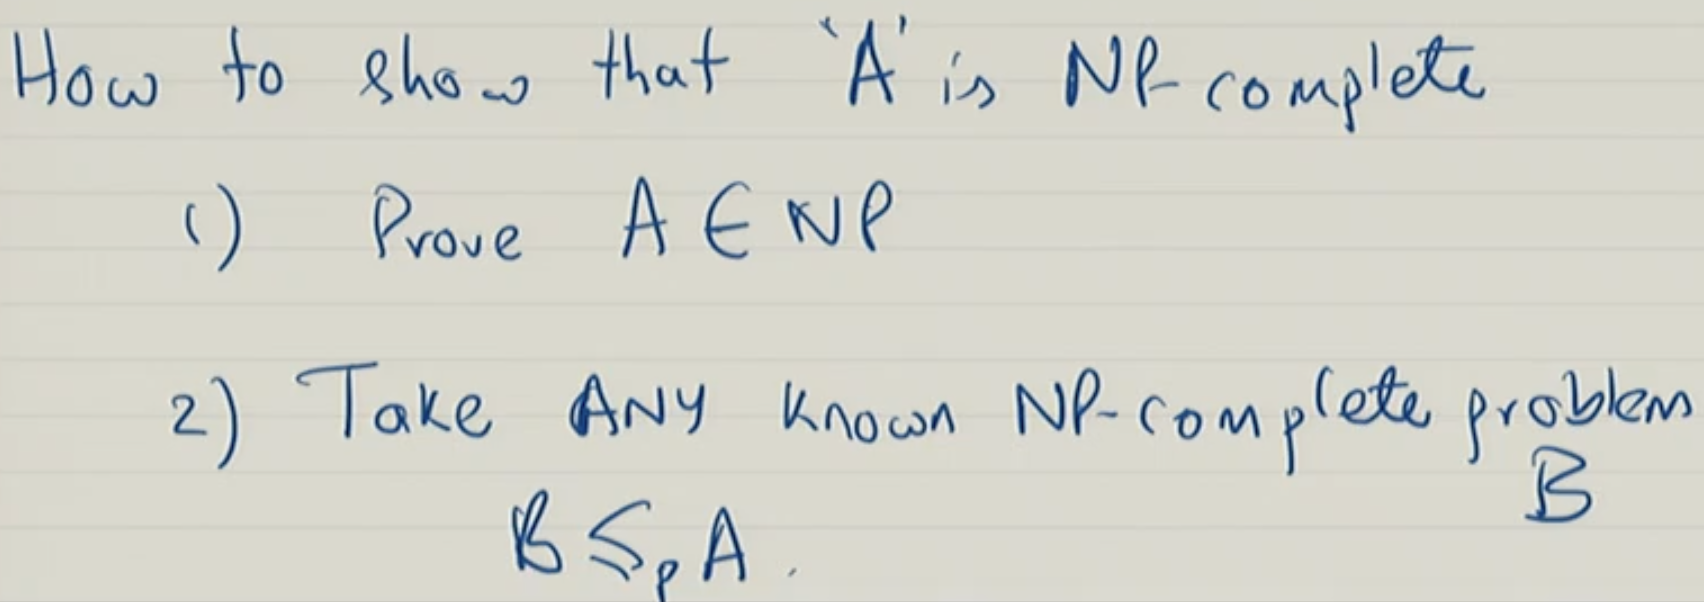 How to show that 'A' is NP-complete
1) Prove A ∈ NP
2) Take ANY known NP-complete problem
B
B ≤p A.